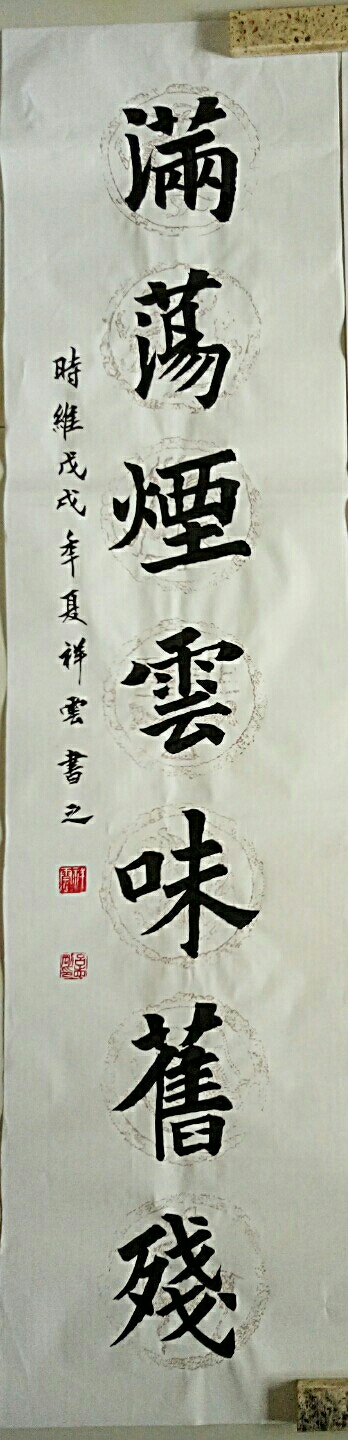 滿蕩煙雲味舊殘
時維戊戌年夏祥雲書之